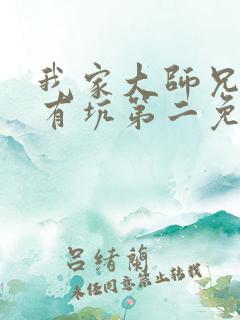 我家大師兄
有坑第二免
呂緒蘭
未经同意禁止转载